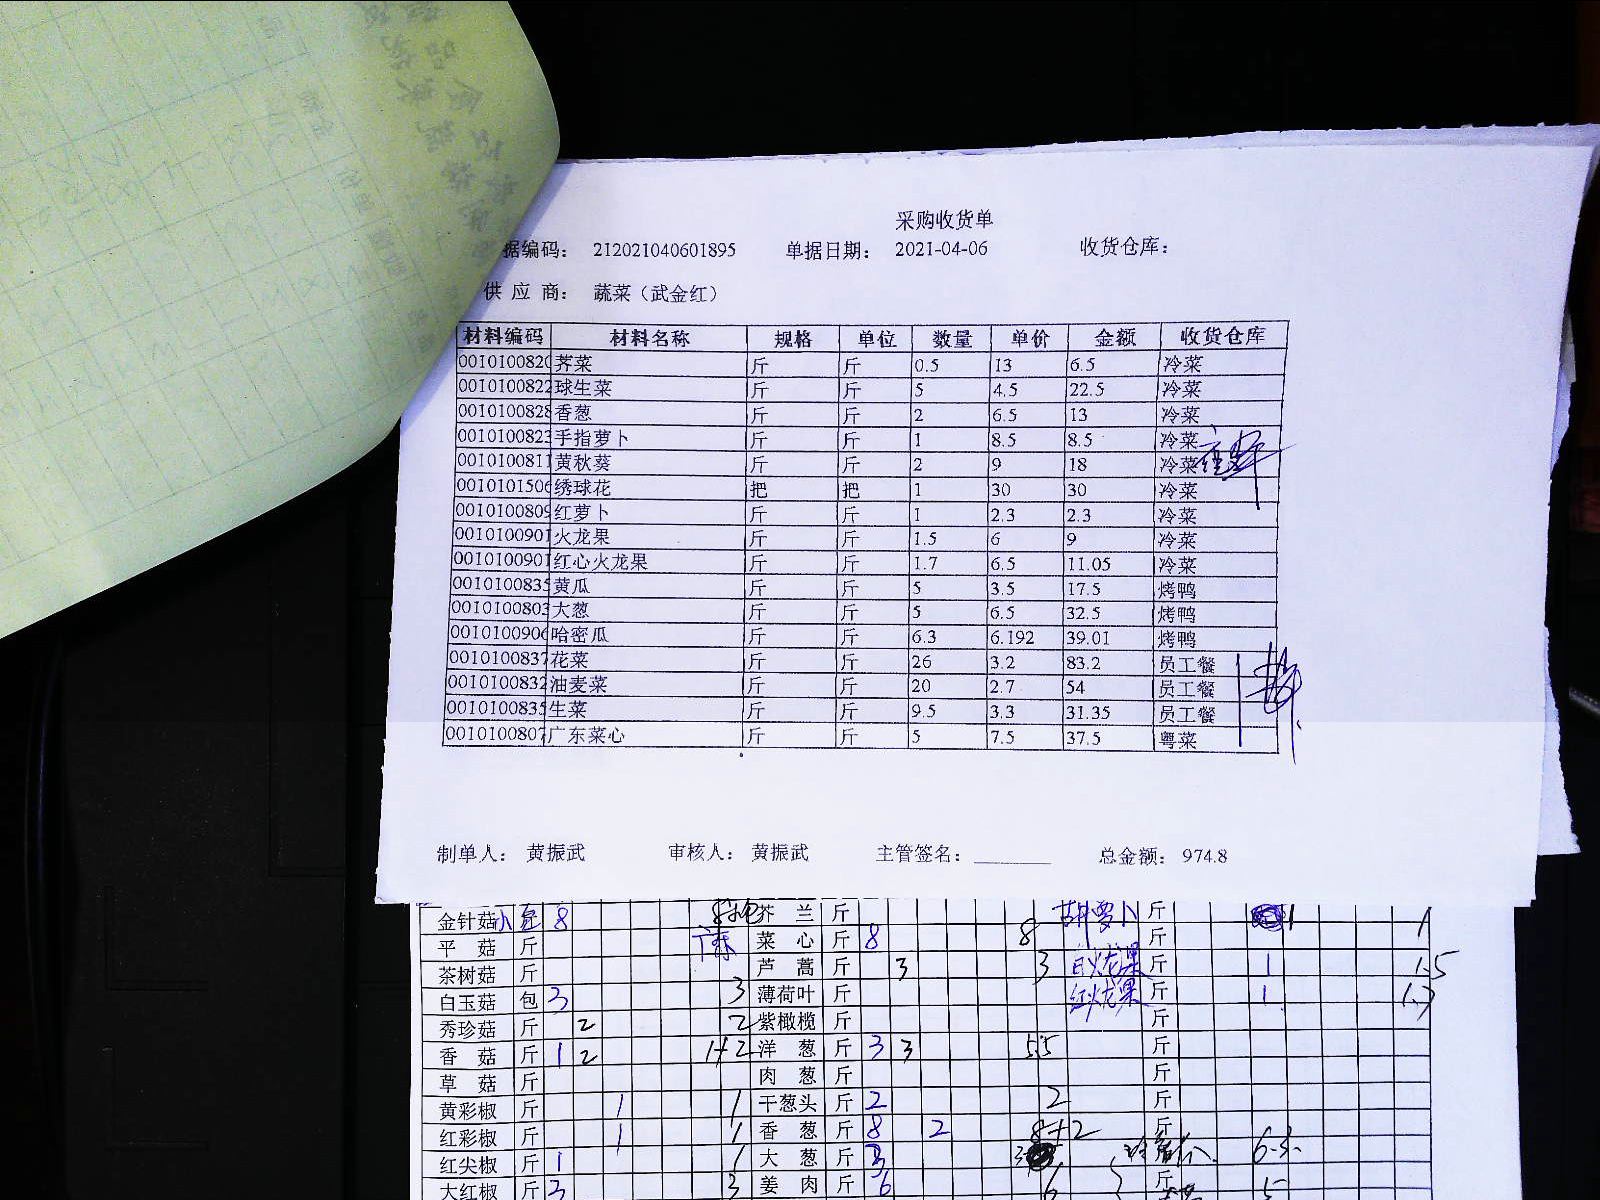 采购收货单
据编码： 212021040601895 单据日期： 2021-04-06 收货仓库：
供 应 商： 蔬菜（武金红）
材料编码 材料名称 规格 单位 数量 单价 金额 收货仓库
0010100820 荠菜 斤 斤 0.5 13 6.5 冷菜
0010100822 球生菜 斤 斤 5 4.5 22.5 冷菜
0010100828 香葱 斤 斤 2 6.5 13 冷菜
0010100823 手指萝卜 斤 斤 1 8.5 8.5 冷菜
0010100811 黄秋葵 斤 斤 2 9 18 冷菜
0010101506 绣球花 把 把 1 30 30 冷菜
0010100809 红萝卜 斤 斤 1 2.3 2.3 冷菜
0010100901 火龙果 斤 斤 1.5 6 9 冷菜
0010100901 红心火龙果 斤 斤 1.7 6.5 11.05 冷菜
0010100835 黄瓜 斤 斤 5 3.5 17.5 烤鸭
0010100803 大葱 斤 斤 5 6.5 32.5 烤鸭
0010100906 哈密瓜 斤 斤 6.3 6.192 39.01 烤鸭
0010100837 花菜 斤 斤 26 3.2 83.2 员工餐
0010100832 油麦菜 斤 斤 20 2.7 54 员工餐
0010100835 生菜 斤 斤 9.5 3.3 31.35 员工餐
0010100807 广东菜心 斤 斤 5 7.5 37.5 粤菜
制单人： 黄振武 审核人： 黄振武 主管签名： 总金额： 974.8
金针菇 小 8 芥 兰 斤 胡萝卜 斤 1 1
平 菇 斤 菜 心 斤 8 8 斤
茶树菇 斤 芦 蒿 斤 3 3 白火龙果 斤 1 1.5
白玉菇 包 3 3 薄荷叶 斤 红火龙果 斤 1 1.7
秀珍菇 斤 2 2 紫橄榄 斤 斤
香 菇 斤 1 2 1+2 洋 葱 斤 3 3 5.5 斤
草 菇 斤 肉 葱 斤 斤
黄彩椒 斤 1 1 干葱头 斤 2 2 斤
红彩椒 斤 1 1 香 葱 斤 8 2 8+2 斤
红尖椒 斤 1 1 大 葱 斤 3 6.3
大红椒 斤 3 3 姜 肉 斤 6 6 斤 5